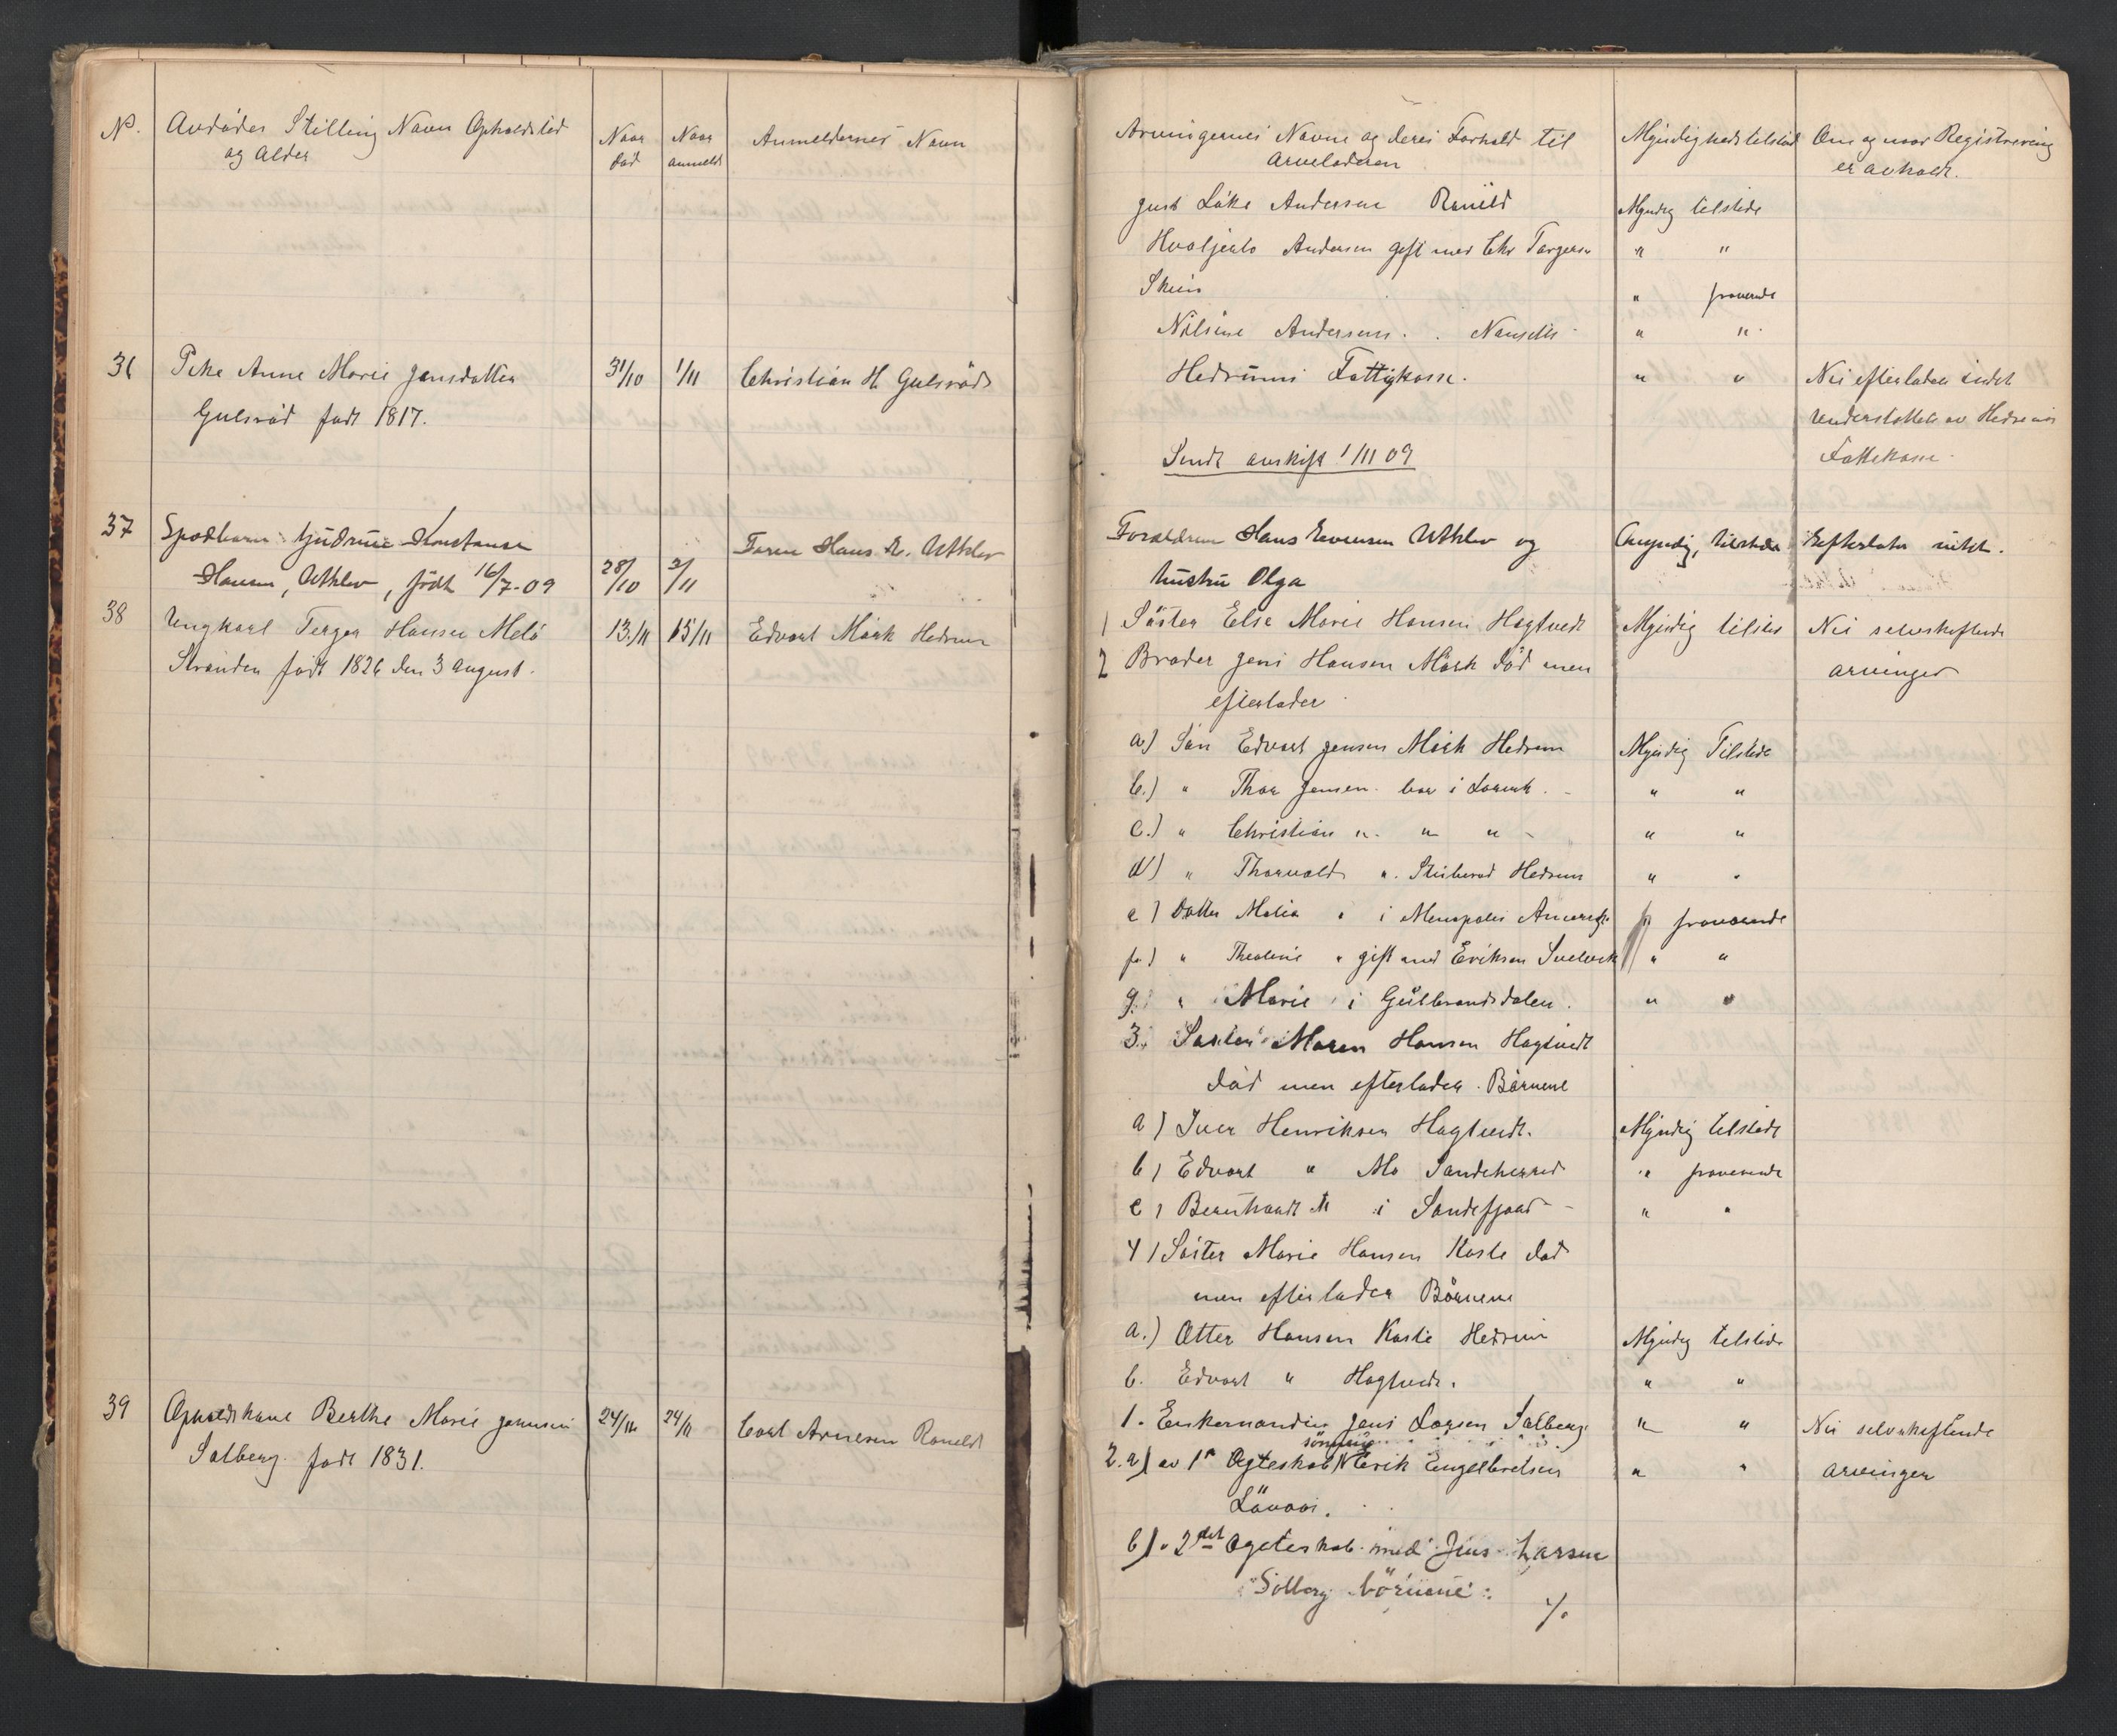 No. Avdødes Stilling Navn Opholdsted
og Alder
Naar
død
Naar
anmeldt
Anmeldernes Navn
36 Pike Anne Marie Jensdatter
Gulsrød født 1817.
31/10 1/11 Christian H. Gulsrød
37 Spædbarn Gudrun Konstanse
Hansen, Uthlev, født 16/7-09
28/10 2/11 Faren Hans E. Uthlev
38 Ungkarl Terger Hansen Melø
Stranden født 1826 den 3 august.
13/11 15/11 Edvart Mørk Hedrum
39 Opholdskone Berthe Marie
Solberg. født 1831.
24/11 24/11 Carl Arnesen Roneld
Arvingernes Navne og deres Forhold til
Arveladeren
Myndighedstilstand
Om og naar Registrering
er avholdt.
Andersen
Myndig tilstede
Andersen gift med Chr
" "
Skien
" fraværende
Nilsine Andersens. . Nanset
" "
Hedrums Fattigkasse.
" "
Nei efterlader intet
understøttet av Hedrums
Fattekasse
Sendt avskift 1/11 09
Forældrene Hans Evensen Uthlev og
hustru Olga
Umyndig, tilstede
Efterlater intet.
1 Søster Else Marie Hansen Hagtvedt
Myndig tilsted
Nei selvskiftende
arvinger
2 Broder Jens Hansen Mørk død men
efterlader
a) Søn Edvart Jensen Mørk Hedrum
Myndig Tilstede
b.) " Thor Jensen bor i Larvik. -
" "
c.) " Christian " " " -
" "
d) " Thorvald " Hedrum
" "
e) Datter " i
fraværende
f.) " " gift med Eriksen Svelvik
" "
g. " Marie i Gulbrandsdalen.
" "
3. Søster Maren Hansen Hagtvedt
død men efterlader Børnene
a) Iver Henriksen Hagtvedt.
Myndig tilstede
b) Edvart " Mo Sandeherred
" fraværende
c) Bernhardt " i Sandefjord -
" "
4) Søster Marie Hansen Kaste død
men efterlader Børnene
a.) Otter Hansen Kaste Hedrum
Myndig tilstede
b. Edvart " Hagtvedt.
" "
1. Enkemanden Jens Larsen Solberg
" "
Nei selvskiftende
arvinger
sønnen
2.a) av 1ste Egteskab Erik Engelbretsen
" "
b) " 2det Egteskab med Jens Larsen
Solberg børnene:
./.